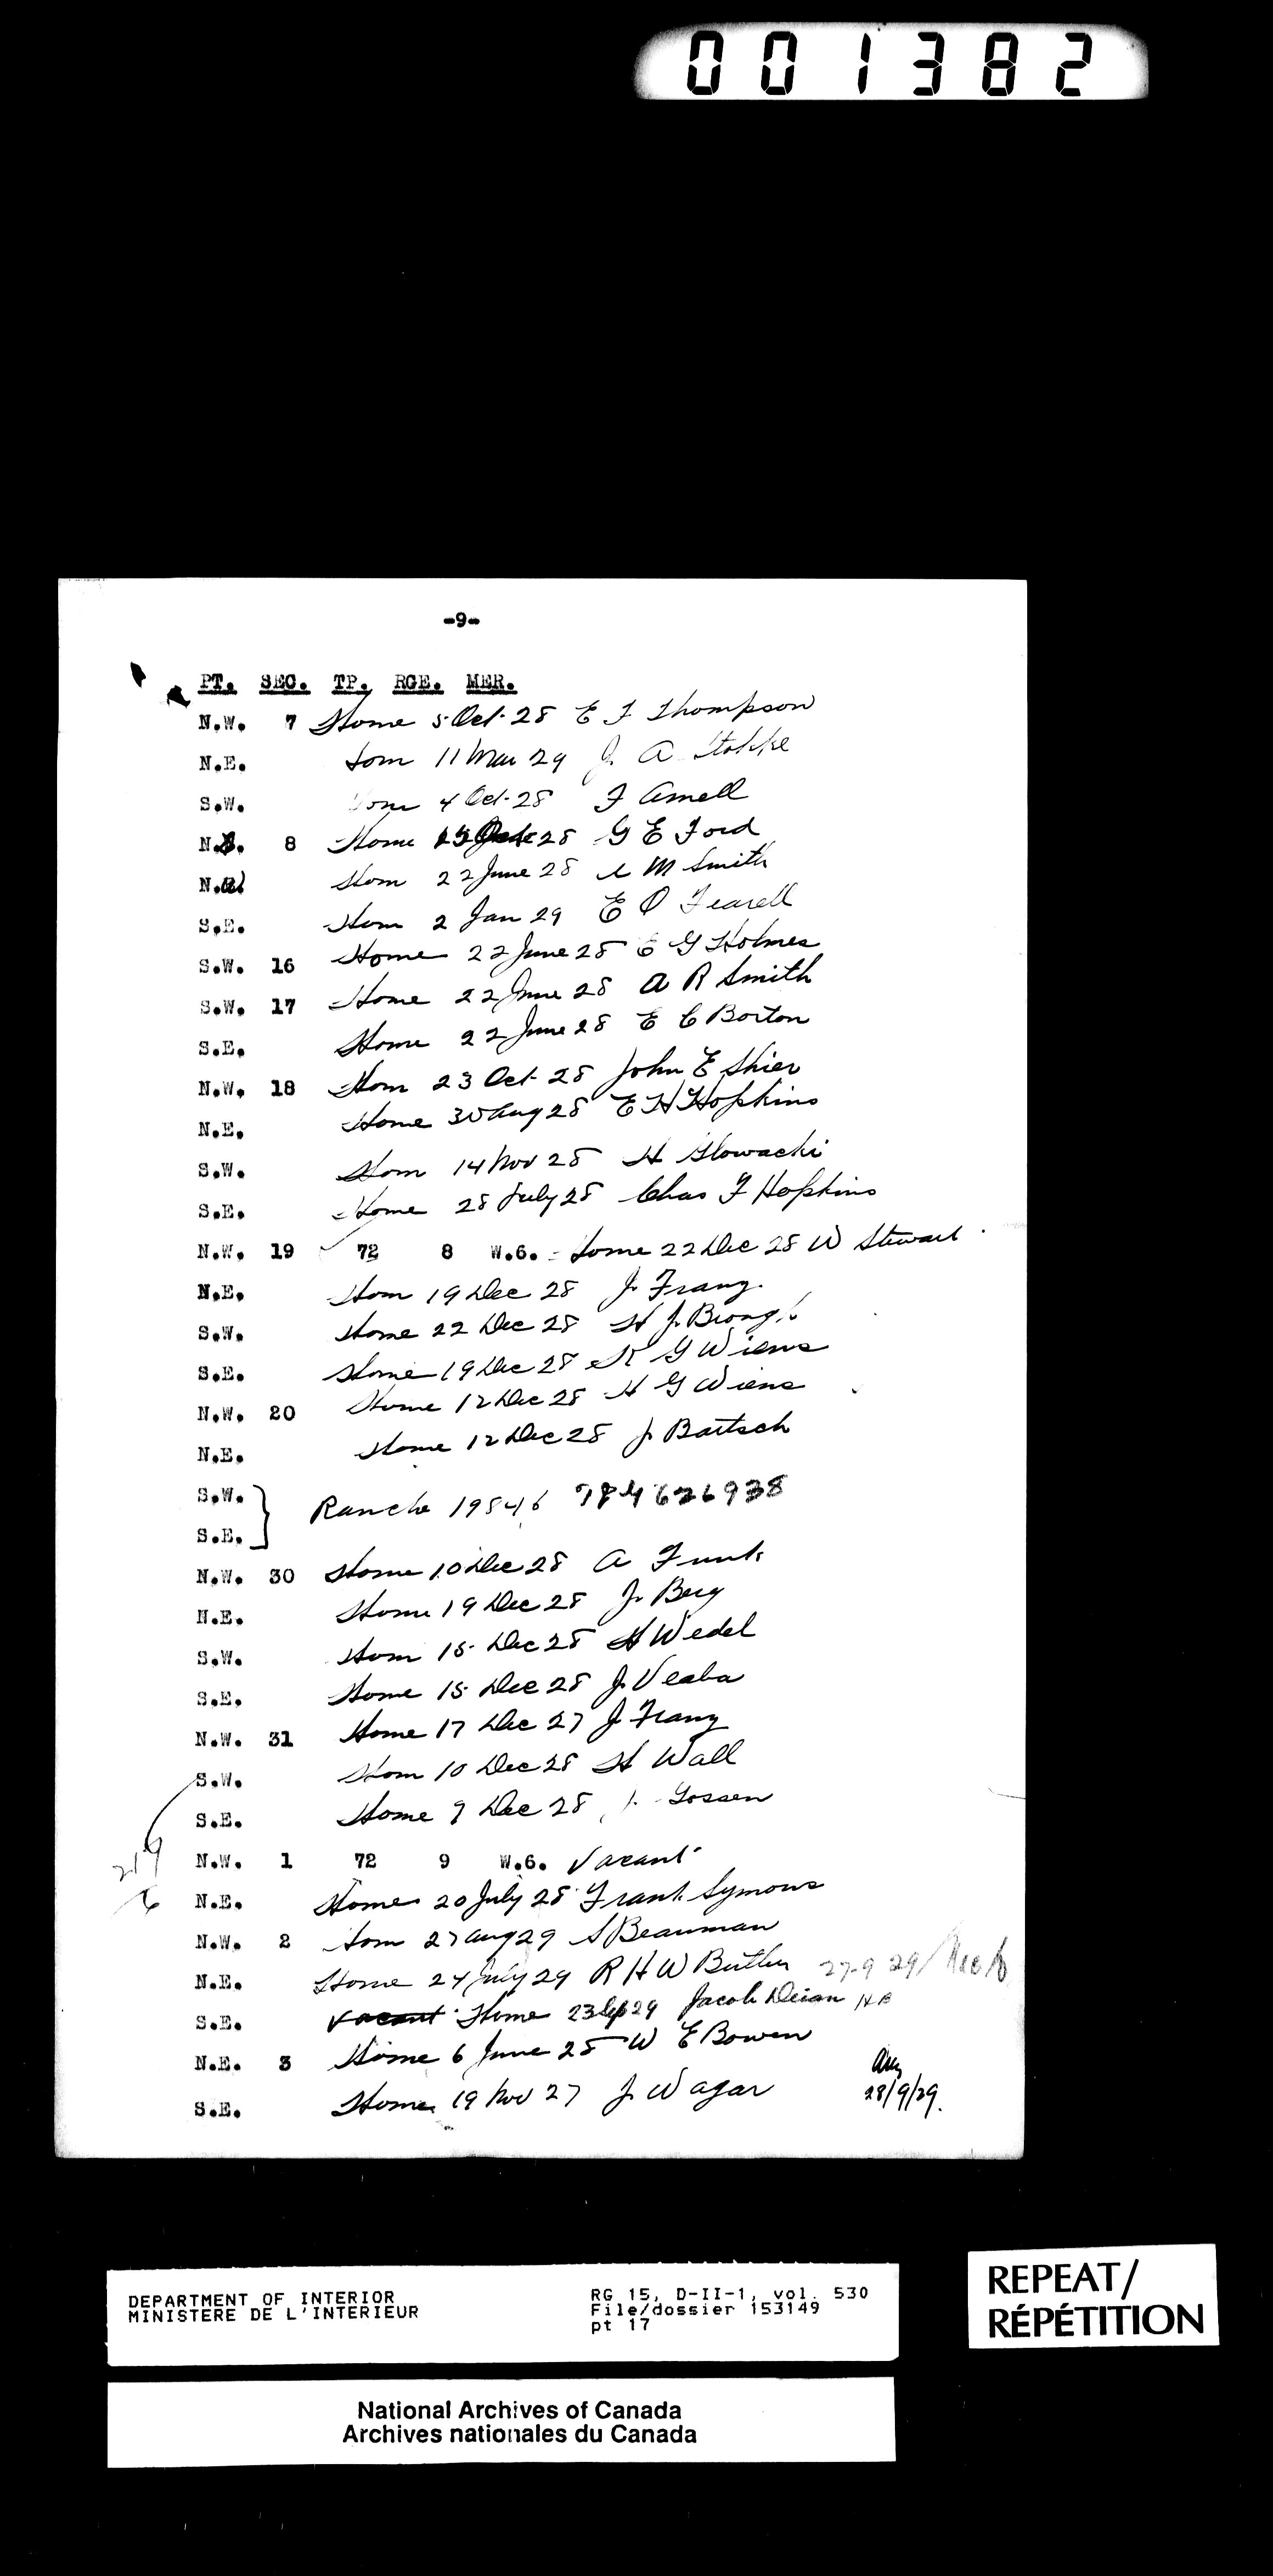 001382
-9-
PT. SEC. TP. RGE. MER.
N.W. 7 Home 5 Oct. 28 E J Thompson
N.E. Hom 11 Mar 29 J. A Stokke
S.W. Hom 4 Oct. 28 F Arnell
N. 8 Home 28 G E Ford
N. Hom 22 June 28 M Smith
S.E. Hom 2 Jan 29 E O Fearell
S.W. 16 Home 22 June 28 E G Holmes
S.W. 17 Home 22 June 28 A R Smith
S.E. Home 22 June 28 E C Borton
N.W. 18 Hom 23 Oct 28 John E Shier
N.E. Home 30 Aug 28 E H Hopkins
S.W. Hom 14 Nov 28 H Glowacki
S.E. Home 28 July 28 Chas F Hopkins
N.W. 19 72 8 W.6. Home 22 Dec 28 W Stewart
N.E. Hom 19 Dec 28 J. Franz
S.W. Home 22 Dec 28 H J. Brough
S.E. Home 19 Dec 28 K G Wiens
N.W. 20 Home 12 Dec 28 H G Wiens
N.E. Home 12 Dec 28 J. Bartsch
S.W. } Ranche 19846 784626938
S.E.
N.W. 30 Home 10 Dec 28 A Funk
N.E. Home 19 Dec 28 J. Berg
S.W. Hom 15 Dec 28 H Wedel
S.E. Home 15 Dec 28 J. Vealia
N.W. 31 Home 17 Dec 27 J Franz
S.W. Hom 10 Dec 28 H Wall
S.E. Home 7 Dec 28 J. Gossen
N.W. 1 72 9 W.6. Vacant
N.E. Home 20 July 28 Frank Symons
N.W. 2 Hom 27 Aug 29 S Beauman
N.E. Home 24 July 29 R H W Butler 27-9 29
S.E. Vacant Home 23 Sep 29 Jacob Deian HB
N.E. 3 Home 6 June 28 W E Bowen
S.E. Home 19 Nov 27 J. Wagar 28/9/29.
219
DEPARTMENT OF INTERIOR
MINISTERE DE L'INTERIEUR
RG 15, D-II-1, vol. 530
File/dossier 153149
pt 17
REPEAT/
RÉPÉTITION
National Archives of Canada
Archives nationales du Canada